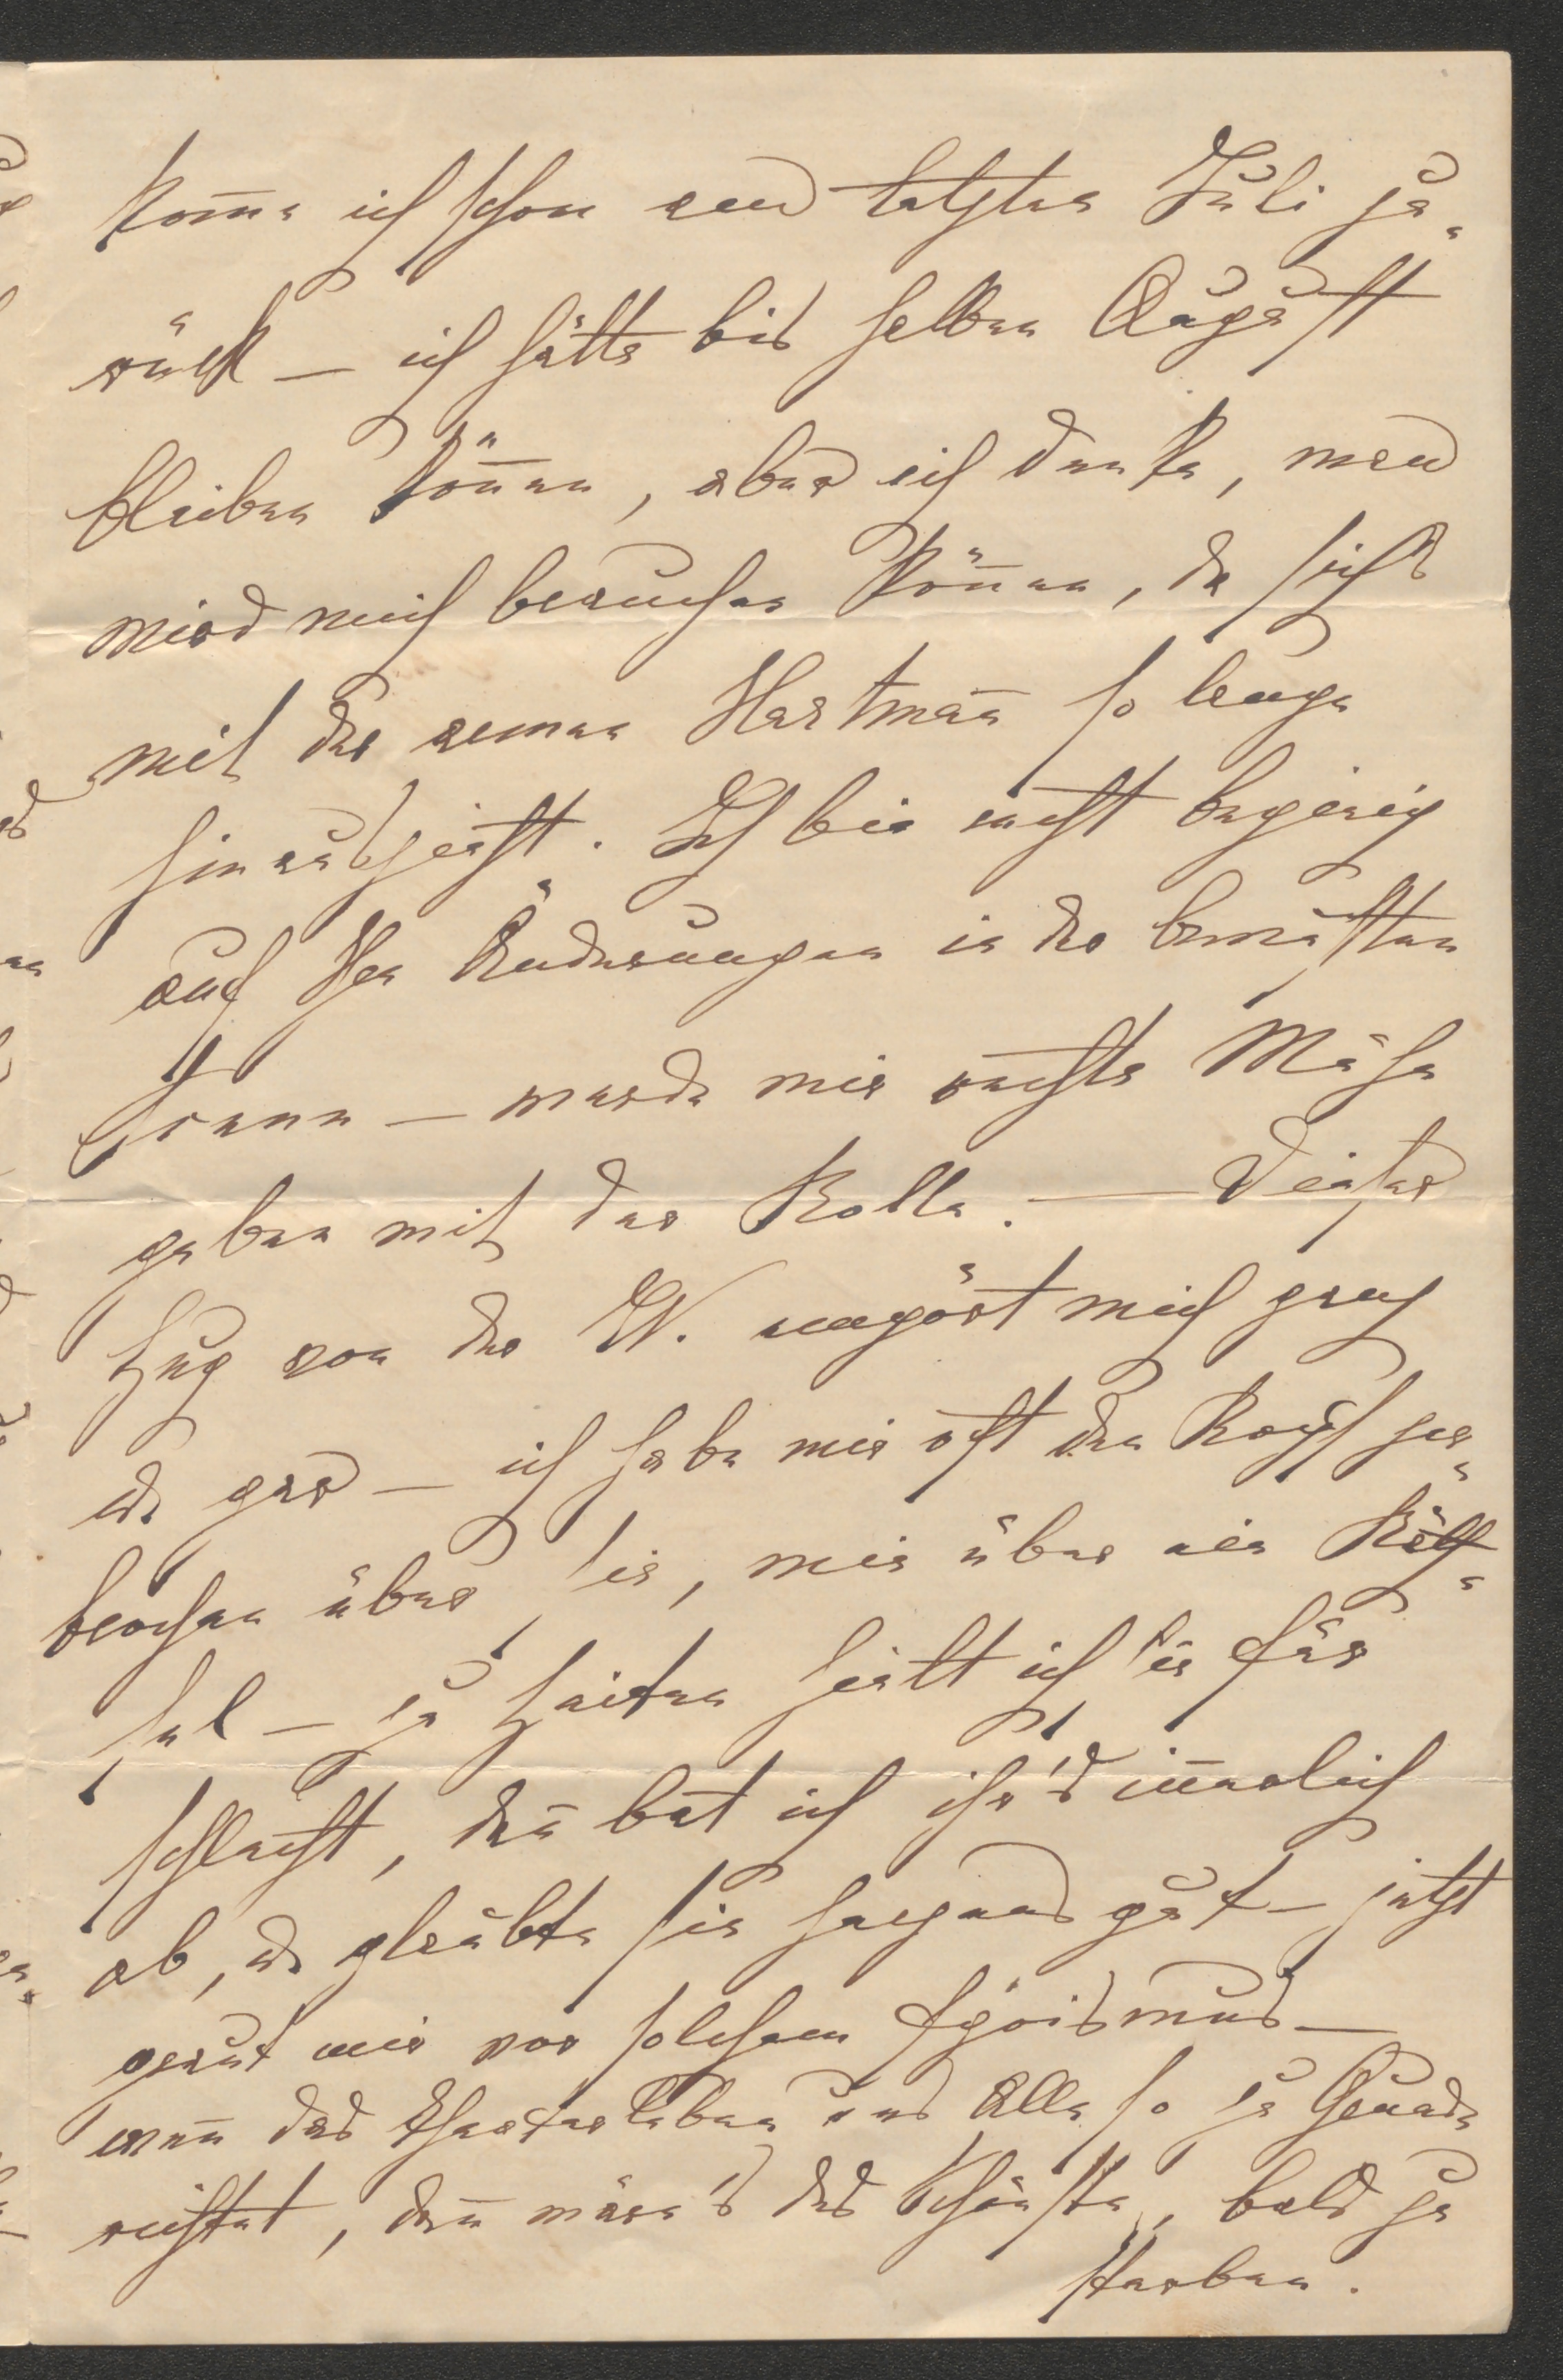 komme ich schon am letzten Juli zu-
rück — ich hätte bis selben August
bleiben können, aber ich denke, man
wird mich brauchen können, da sich's
mit der armen Hartmann so lange
hinauszieht. Ich bin recht begierig
auf Ihre Änderungen in der bewußten
Scene — werde mir rechte Mühe
geben mit der Rolle. — Dieser
Zug von der W. empört mich ganz
u. gar — ich habe mir oft den Kopf zer-
brochen über sie, wie über ein Räth-
sel — zu Zeiten hielt ich sie für
schlecht, dann bat ich ihr's innerlich
ab, u. glaubte sie herzensgut — jetzt
graut mir vor solchem Egoismus —
wenn das Theaterleben uns Alle so zu Grunde
richtet, dann wäre's das Schönste, bald zu
sterben.